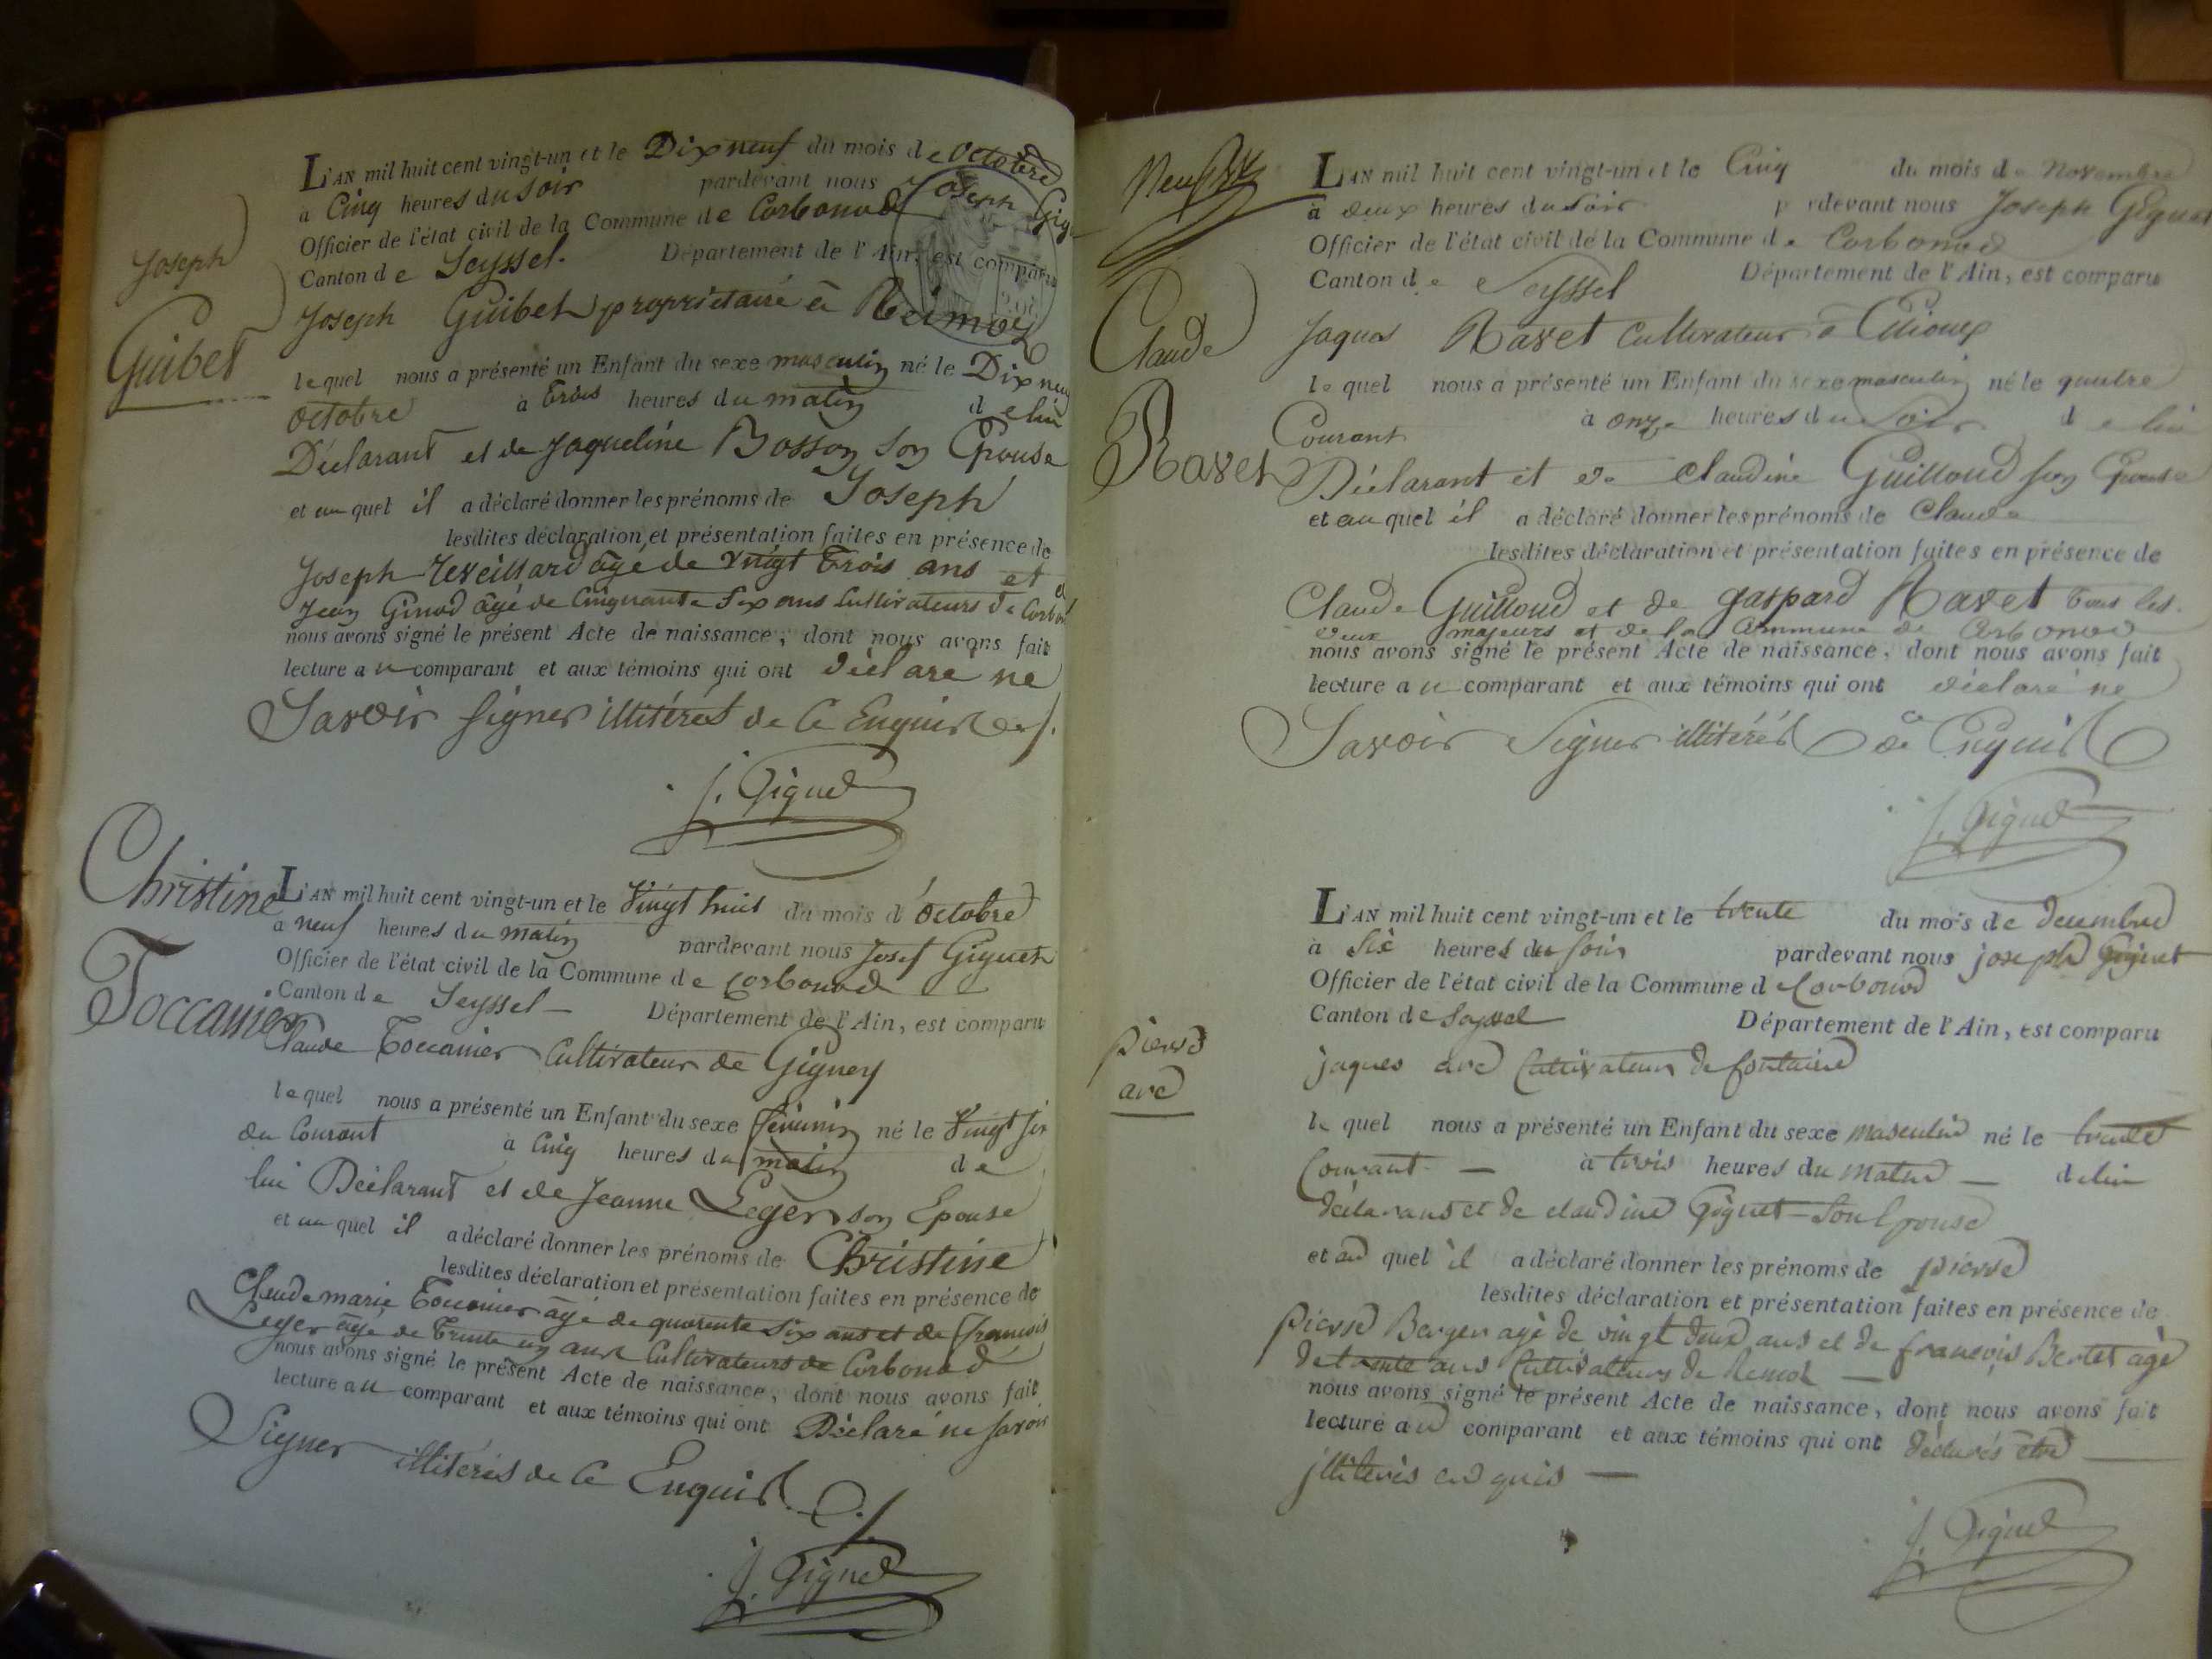 Joseph
Guibet
L'AN mil huit cent vingt-un et le Dix neuf du mois de octobre
a Cinq heures du Soir pardevant nous Joseph Gig
Officier de l'état civil de la Commune de Corbonod
Canton de Seyssel. Département de l'Ain, est comparu
Joseph Guibet propriétaire à
lequel nous a présenté un Enfant du sexe masculin né le Dix neuf
octobre à trois heures du matin de lui
Déclarant et de Jaqueline Bosson son Epouse
et au quel il a déclaré donner les prénoms de Joseph
lesdites déclaration et présentation faites en présence de
Joseph Reveillard âgé de vingt trois ans et
Jean Ginod âgé de Cinquante Six ans Cultivateurs de Corbo
nous avons signé le présent Acte de naissance, dont nous avons fait
lecture au comparant et aux témoins qui ont déclaré ne
Savoir Signer illitérés de Ce Enquis
J. Giguet
Christine
Toccanier
L'AN mil huit cent vingt-un et le Vingt huit du mois d'octobre
a neuf heures du matin pardevant nous Josef Giguet
Officier de l'état civil de la Commune de Corbonod
Canton de Seyssel Département de l'Ain, est comparu
Claude Toccanier Cultivateur de Gigney
lequel nous a présenté un Enfant du sexe féminin né le Vingt six
du Courant à Cinq heures du matin de
lui Déclarant et de Jeanne Leger son Epouse
et au quel il a déclaré donner les prénoms de Christine
lesdites déclaration et présentation faites en présence de
Claude marie Toccanier âgé de quarente Six ans et de françois
Leger âgé de Trente un ans Cultivateurs de Corbonod
nous avons signé le présent Acte de naissance, dont nous avons fait
lecture au comparant et aux témoins qui ont Déclaré ne Savoir
Signer illitérés de Ce Enquis
J. Giguet
Claude
Ravet
L'AN mil huit cent vingt-un et le Cinq du mois de Novembre
à deux heures du Soir pardevant nous Joseph Giguet
Officier de l'état civil de la Commune de Corbonod
Canton de Seyssel Département de l'Ain, est comparu
Jaques Ravet Cultivateur à
le quel nous a présenté un Enfant du sexe masculin né le quatre
Courant à onze heures du Soir de lui
Déclarant et de Claudine Guilloud son Epouse
et au quel il a déclaré donner les prénoms de Claude
lesdites déclaration et présentation faites en présence de
Claude Guilloud et de gaspard Ravet tous les
deux majeurs et de la Commune de Corbonod
nous avons signé le présent Acte de naissance, dont nous avons fait
lecture au comparant et aux témoins qui ont déclaré ne
Savoir Signer illitérés de Ce Enquis
J. Giguet
pierre
arc
L'AN mil huit cent vingt-un et le trente du mois de decembre
à Six heures du soir pardevant nous joseph Giguet
Officier de l'état civil de la Commune de Corbonod
Canton de Seyssel Département de l'Ain, est comparu
jaques arc Cultivateur de fontaine
le quel nous a présenté un Enfant du sexe masculin né le trente
Courant à trois heures du matin de lui
déclarant et de claudine Giguet son Epouse
et au quel il a déclaré donner les prénoms de pierre
lesdites déclaration et présentation faites en présence de
pierre Berger agé de vingt deux ans et de françois Bertet âgé
de trente ans Cultivateurs de
nous avons signé le présent Acte de naissance, dont nous avons fait
lecture au comparant et aux témoins qui ont déclarés être
illiterés enquis
J. Giguet